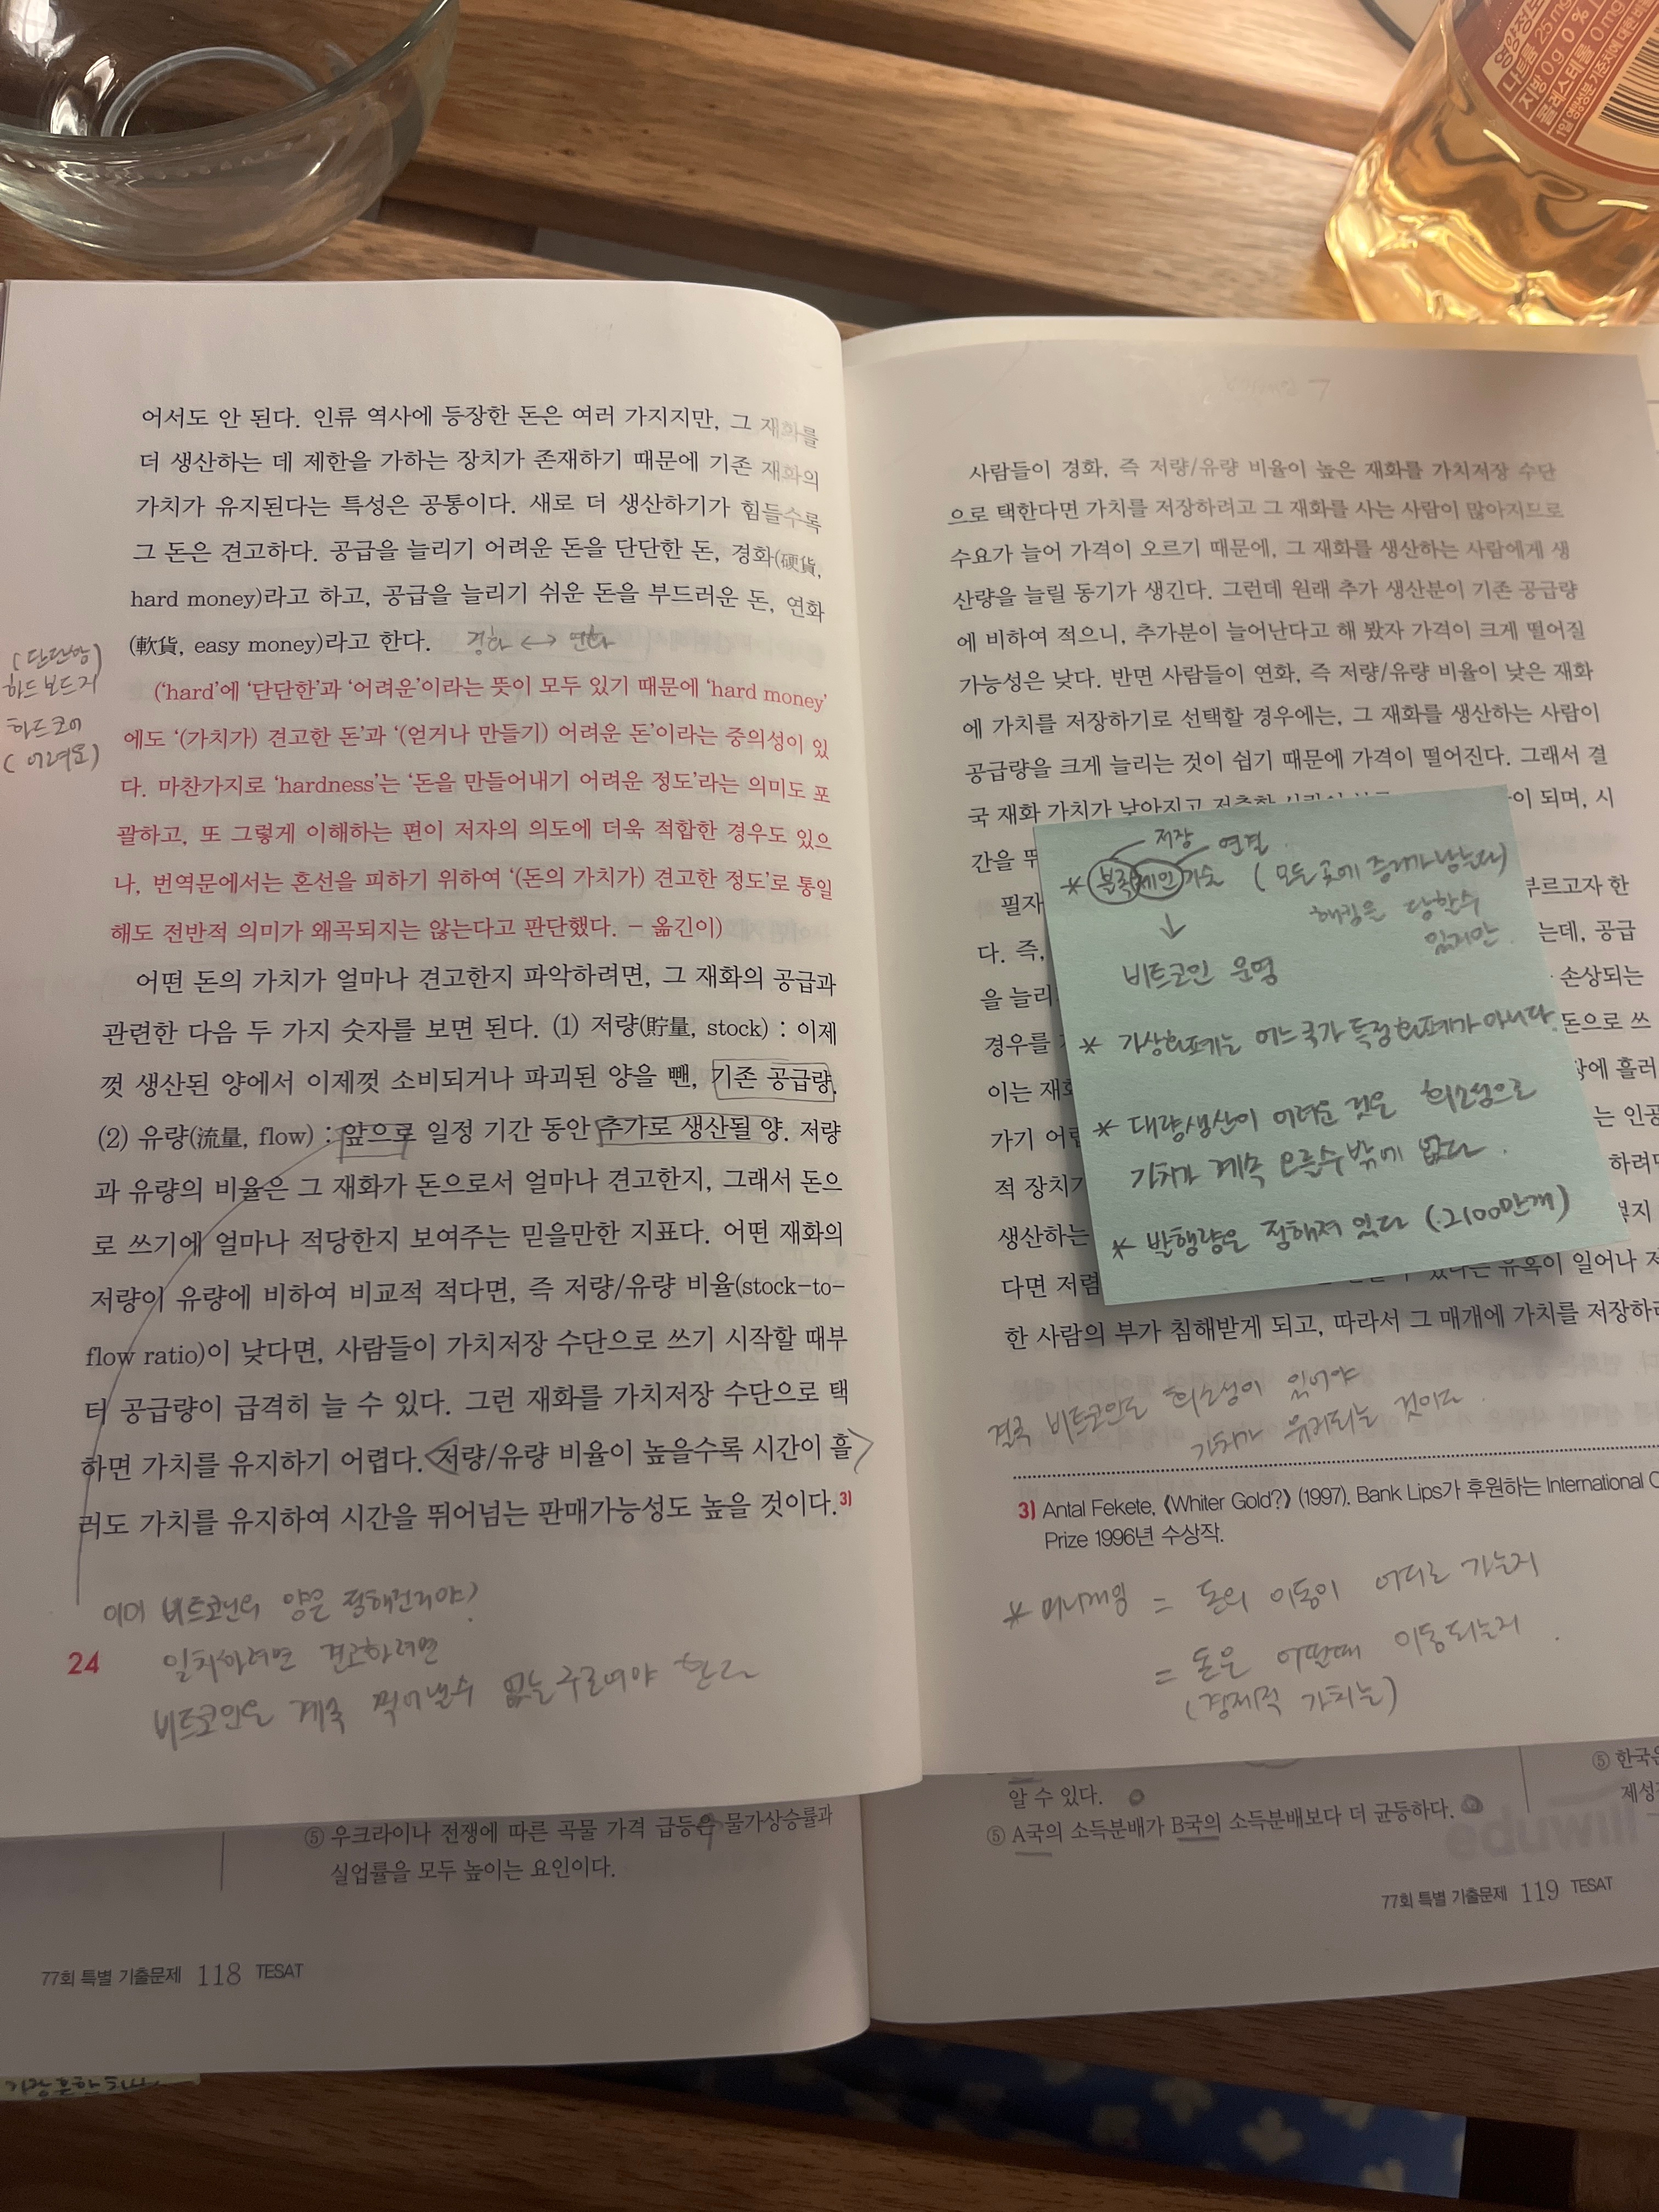 영양정보
나트륨 25 mg
지방 0 g 0 %
콜레스테롤 0 mg
어서도 안 된다. 인류 역사에 등장한 돈은 여러 가지지만, 그 재화를
더 생산하는 데 제한을 가하는 장치가 존재하기 때문에 기존 재화의
가치가 유지된다는 특성은 공통이다. 새로 더 생산하기가 힘들수록
그 돈은 견고하다. 공급을 늘리기 어려운 돈을 단단한 돈, 경화(硬貨,
hard money)라고 하고, 공급을 늘리기 쉬운 돈을 부드러운 돈, 연화
(軟貨, easy money)라고 한다. 경화 ↔ 연화
(단단함)
하드보드지
하드코어
(어려움)
('hard'에 '단단한'과 '어려운'이라는 뜻이 모두 있기 때문에 'hard money'
에도 '(가치가) 견고한 돈'과 '(얻거나 만들기) 어려운 돈'이라는 중의성이 있
다. 마찬가지로 'hardness'는 '돈을 만들어내기 어려운 정도'라는 의미도 포
괄하고, 또 그렇게 이해하는 편이 저자의 의도에 더욱 적합한 경우도 있으
나, 번역문에서는 혼선을 피하기 위하여 '(돈의 가치가) 견고한 정도'로 통일
해도 전반적 의미가 왜곡되지는 않는다고 판단했다. – 옮긴이)
어떤 돈의 가치가 얼마나 견고한지 파악하려면, 그 재화의 공급과
관련한 다음 두 가지 숫자를 보면 된다. (1) 저량(貯量, stock) : 이제
껏 생산된 양에서 이제껏 소비되거나 파괴된 양을 뺀, 기존 공급량.
(2) 유량(流量, flow) : 앞으로 일정 기간 동안 추가로 생산될 양. 저량
과 유량의 비율은 그 재화가 돈으로서 얼마나 견고한지, 그래서 돈으
로 쓰기에 얼마나 적당한지 보여주는 믿을만한 지표다. 어떤 재화의
저량이 유량에 비하여 비교적 적다면, 즉 저량/유량 비율(stock-to-
flow ratio)이 낮다면, 사람들이 가치저장 수단으로 쓰기 시작할 때부
터 공급량이 급격히 늘 수 있다. 그런 재화를 가치저장 수단으로 택
하면 가치를 유지하기 어렵다. <저량/유량 비율이 높을수록 시간이 흘>
러도 가치를 유지하여 시간을 뛰어넘는 판매가능성도 높을 것이다.3)
이미 비트코인의 양은 정해진거야?
일치하려면 견고하려면
비트코인은 계속 찍어낼수 없는 구조여야 한다
24
사람들이 경화, 즉 저량/유량 비율이 높은 재화를 가치저장 수단
으로 택한다면 가치를 저장하려고 그 재화를 사는 사람이 많아지므로
수요가 늘어 가격이 오르기 때문에, 그 재화를 생산하는 사람에게 생
산량을 늘릴 동기가 생긴다. 그런데 원래 추가 생산분이 기존 공급량
에 비하여 적으니, 추가분이 늘어난다고 해 봤자 가격이 크게 떨어질
가능성은 낮다. 반면 사람들이 연화, 즉 저량/유량 비율이 낮은 재화
에 가치를 저장하기로 선택할 경우에는, 그 재화를 생산하는 사람이
공급량을 크게 늘리는 것이 쉽기 때문에 가격이 떨어진다. 그래서 결
국 재화 가치가 낮아지고 이 되며, 시
간을
필자 부르고자 한
다. 즉, 는데, 공급
을 늘리 손상되는
경우를 돈으로 쓰
이는 재화 장에 흘러
가기 어렵 는 인공
적 장치가 하려
생산하는 지
다면 저렴 유혹이 일어나
한 사람의 부가 침해받게 되고, 따라서 그 매개에 가치를 저장하려
저장 연결
* 블록체인기술 (모든 곳에 증거가 남는다)
해킹을 당할수
있지만
↓
비트코인 운영
* 가상화폐는 어느 국가 특정화폐가 아니다.
* 대량생산이 어려운 것은 희소성으로
가치가 계속 오를수밖에 없다.
* 발행량은 정해져 있다 (2100만개)
결국 비트코인도 희소성이 있어야
가치가 유지되는 것이다.
3) Antal Fekete, 《Whiter Gold?》 (1997). Bank Lips가 후원하는 International
Prize 1996년 수상작.
* 머니게임 = 돈의 이동이 어디로 가는지
= 돈은 어떨때 이동되는지.
(경제적 가치는)
⑤ 우크라이나 전쟁에 따른 곡물 가격 급등은 물가상승률과
실업률을 모두 높이는 요인이다.
77회 특별 기출문제 118 TESAT
알 수 있다.
⑤ A국의 소득분배가 B국의 소득분배보다 더 균등하다.
⑤ 한국은
eduwill
77회 특별 기출문제 119 TESAT